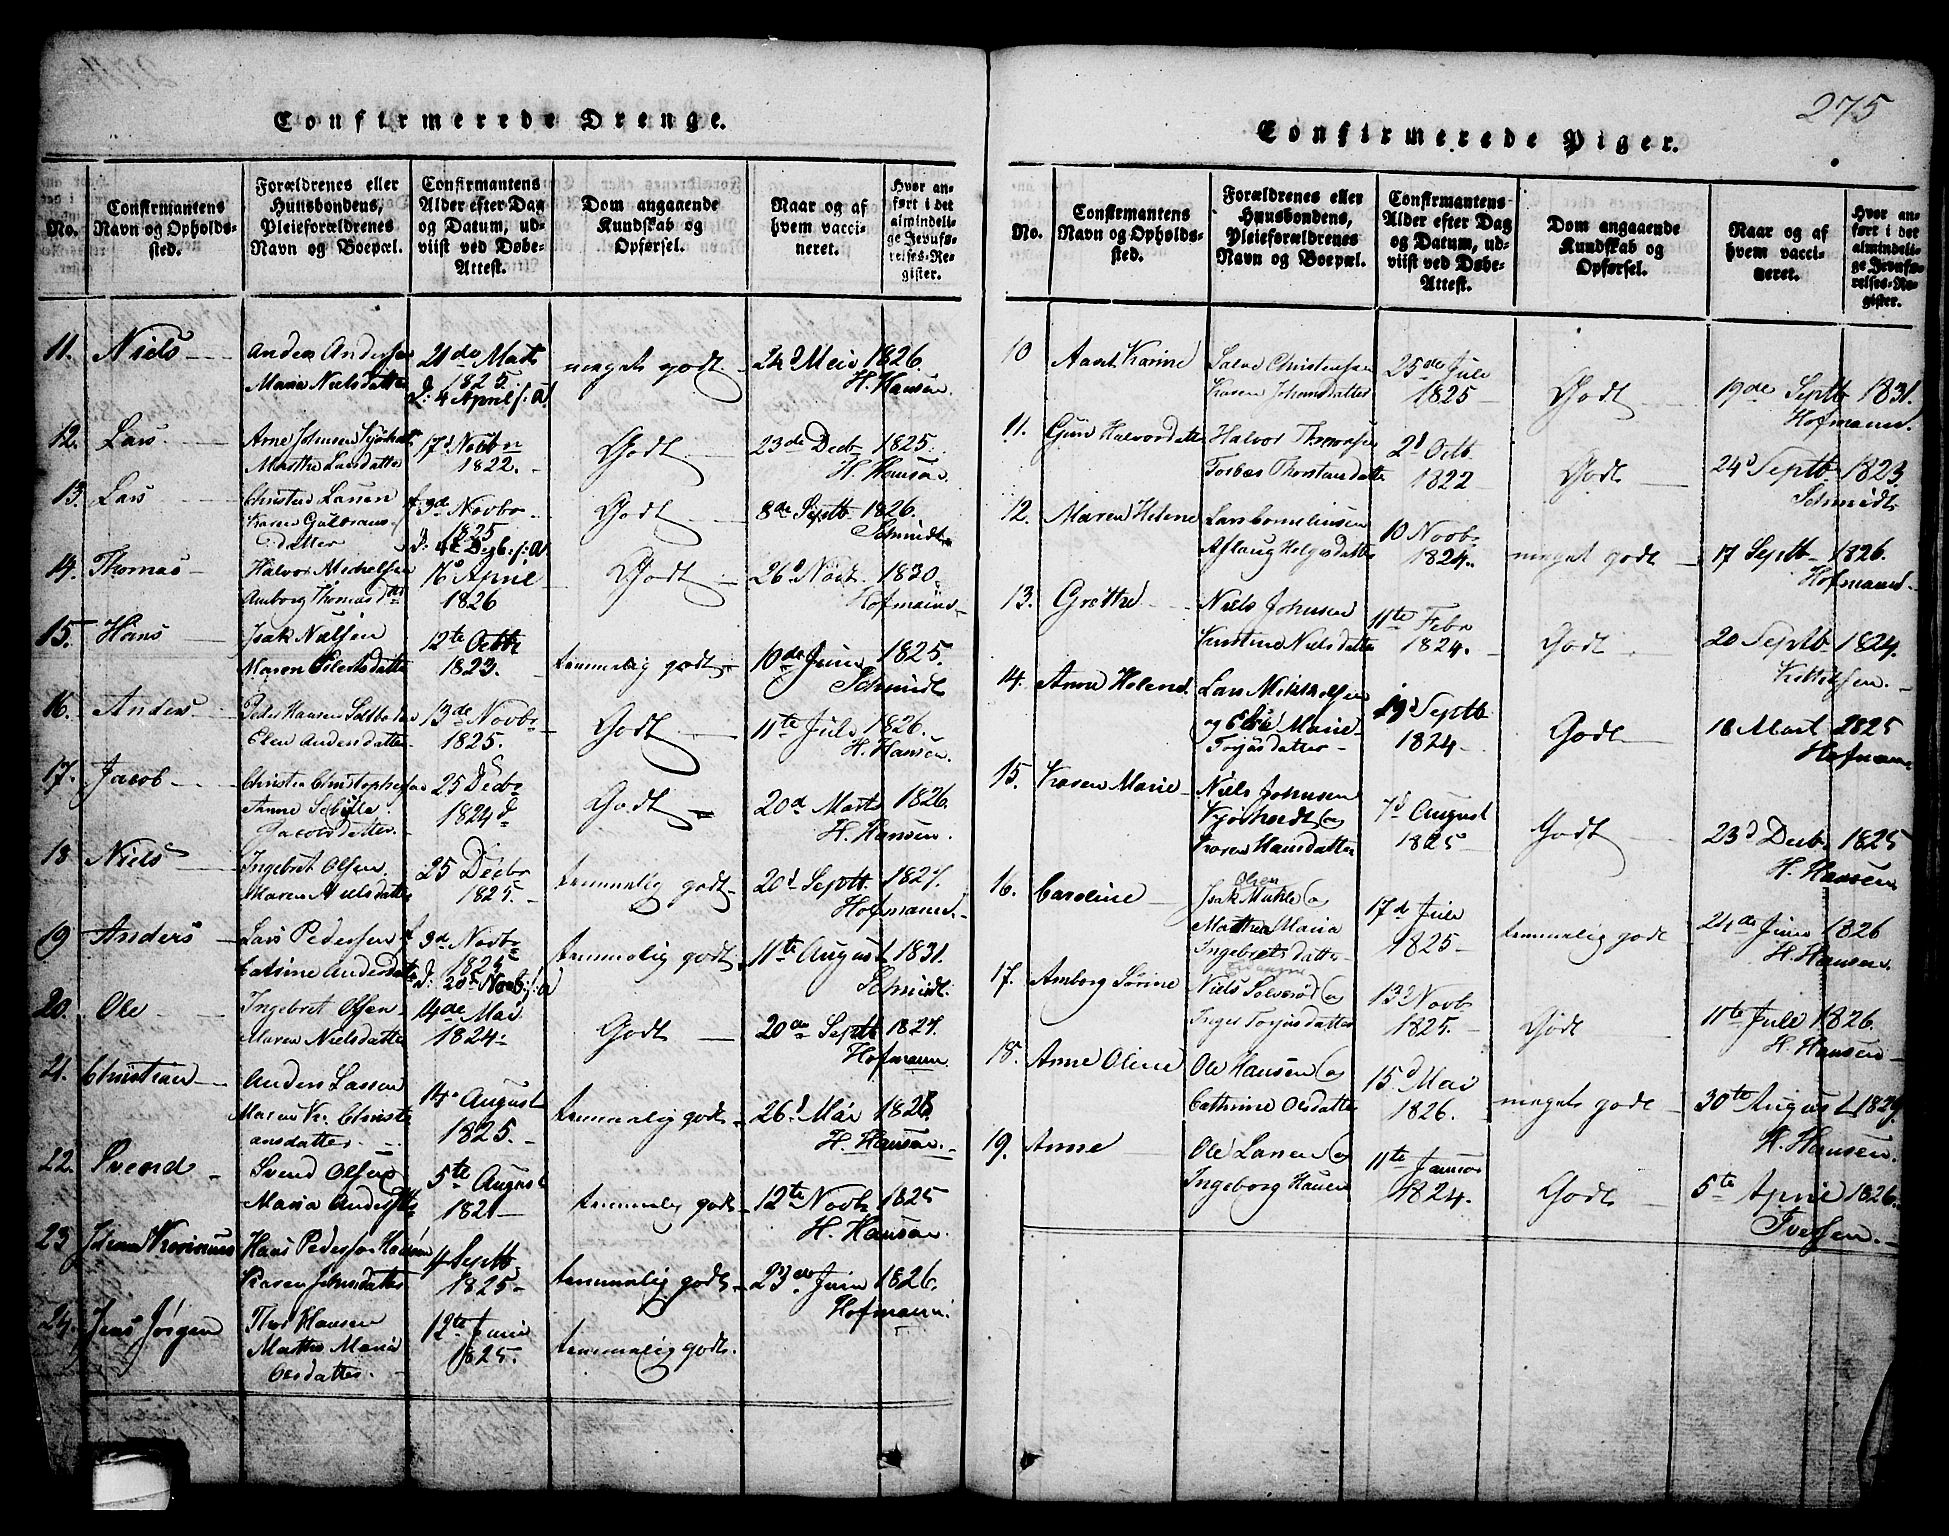 275
Confirmerede Drenge.
No.
Confirmantens Navn og Opholdssted.
Forældrenes eller Huusbondens, Pleieforældrenes Navn og Boepæl.
Confirmantens Alder efter Dag og Datum, udviist ved Døbe-Attest.
Dom angaaende Kundskab og Opførsel.
Naar og af hvem vaccineret.
Hvor anført i det almindelige Jevnførelses-Register.
11. Niels Anders Andersen 21de Marts meget godt. 24d Mei 1826.
Maria Nielsdatter 1825. H. Hansen.
D: 4 April /: A
12. Lars Arne Johnsen 17d Novbr Godt. 23de Decb 1825.
Marthe Larsdatter 1822. H. Hansen.
13. Lars Christen Larsen f. 3de Novbr Godt. 8de Septb 1826.
Karen Gulbrans- 1825 Schmidt.
datter D: 4de Decb: /: A
14. Thomas Halvor Michelsen 16d April Godt 26d 1830.
Amborg Thomasd 1826 Hofmann
15. Hans Isak Nielsen 12te Octbr temmelig godt 10de Juni 1825.
Maren 1823. Schmidt
16. Anders Peder Hansen 13de Novbr Godt 11te Juli 1826.
Elen Andersdatter 1825. H. Hansen.
17. Jacob Christen Christophersen 25 Decbr Godt 20d Mart 1826.
Anne Sebille 1824 H. Hansen.
Jacobsdatter.
18 Niels Ingebret Olsen. 25 Decbr temmelig godt 20d Septb. 1827.
Maren Nielsdatter 1825. Hofmann.
19 Anders Lars Pedersen f. 3d Novbr temmelig godt. 11te August 1831.
Cathrine Andersdatter 1825 Schmidt.
D: 20de Novb: /: A
20. Ole Ingebret Olsen 14de Mai Godt 20de Septb 1827.
Maren Nielsdatter 1824. Hofmann
21. Christian Anders Larsen 14. August temmelig godt 26d Mai
Maren Kr. Christi- 1825. H. Hansen.
ansdatter
22. Svend Svend Olsen 5te August temmelig godt. 12te Novbr 1825
Maria Anders 1821 H. Hansen.
23. Hans Pedersen 4 Septb temmelig godt 23de Juni 1826.
Karen Johnsdatter 1825. Hofmann.
24. Jens Jørgen Thor Hansen 12te Junii temmelig godt.
Mathe Maria 1825.
Olsdatter
Confirmerede Piger.
No.
Confirmantens Navn og Opholdssted.
Forældrenes eller Huusbondens, Pleieforældrenes Navn og Boepæl.
Confirmantens Alder efter Dag og Datum, udviist ved Døbe-Attest.
Dom angaaende Kundskab og Opførsel.
Naar og af hvem vaccineret.
Hvor anført i det almindelige Jevnførelses-Register.
10 Karine Christensen 25de Juli Godt 19de Septb 1831.
Karen Johansdatter 1825 Hofmann.
11. Halvordatter Halvor 2d Octb Godt 24d Septb 1823.
Torbør Thorstensdatter 1822 Schmidt
12. Maren Helene Lars Corneliusen 10 Novbr meget godt 17 Septb 1826.
Aslaug Helgesdatter 1824. Hofmann.
13. Grethe Niels Johnsen 11te Febr Godt 20 Septb 1824.
Kirstine Nielsdatter 1824.
14. Anne Helene. Lars Mikkelsen 19d Septb Godt 18 Mart 1825
og Marie 1824 Hofmann
Torjusdatter
15. Karen Marie Niels Johnsen 7d August Godt 23d Decb. 1825
Kjørholdt og 1825 H. Hansen
Karen Hansdatter
16. Caroline Isak Olsen Muhle og 17d Juli temmelig godt 24de Juni 1826
Mathea Maria 1825 H. Hansen.
Ingebretsdatter
17. Amborg Sørine Niels og 13d Novb Godt 11te Juli 1826.
Inger Torjusdatter 1825. H. Hansen
18. Anne Oline Ole Hansen og 15d Mai meget godt 30te August 1829.
Cathrine Olsdatter 1826. H. Hansen.
19. Anne Ole Larsen og 11te Januar Godt 5te April 1826.
Ingeborg 1824. Iversen.